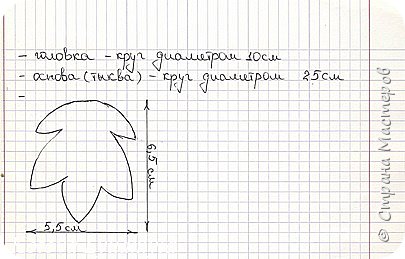 - головка - круг диаметром 10см
- основа (тыква) - круг диаметром 25см
-
6,5 см
5,5см
© Страна Мастеров